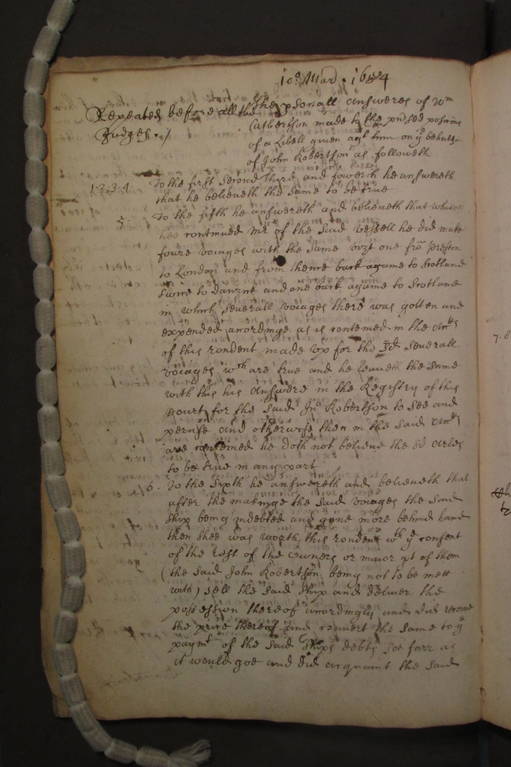 10º Mard. 1654
Repeated before all the
Judges./
The psonall answeres of Wm
Cutbertson made to the
of a Libell given agt him on ye behalfe
of John Robertson as followeth
1.2.3.4. To the first second third and fowerth he answereth
that he believeth the same to be true
5. To the fifth he answereth and believeth that whilst
hee continued mr of the said vessell he did make
foure voiages with the same vizt one frm
to London and from thence back agame to Scotland
to Danzick and one back agame to Scotland
in which severall voiages there was gotten and
expended accordinge as is contened in the
of this rondent made up for the sd severall
voiages wch are true and he leaveth the same
with this his answere in the Registry of this
Court for the said Jn Robertson to see and
peruse and otherwise then in the said
are contened he doth not believe the sd articles
to be true in any part
6. To the sixth he answereth and believeth that
after the makinge the said voiages the said
shipp being indebted and gone more behind hand
then shee was worth, this rondent wth ye consent
of the rest of the owners or maior pt of them
(the said John Robertson being not to be mett
with) sell the said shipp and deliver the
possession thereof accordingly and did receive
the price thereof and convert the same to ye
paymt of the said shipps debts soe farr as
it would goe and did acquaint the said